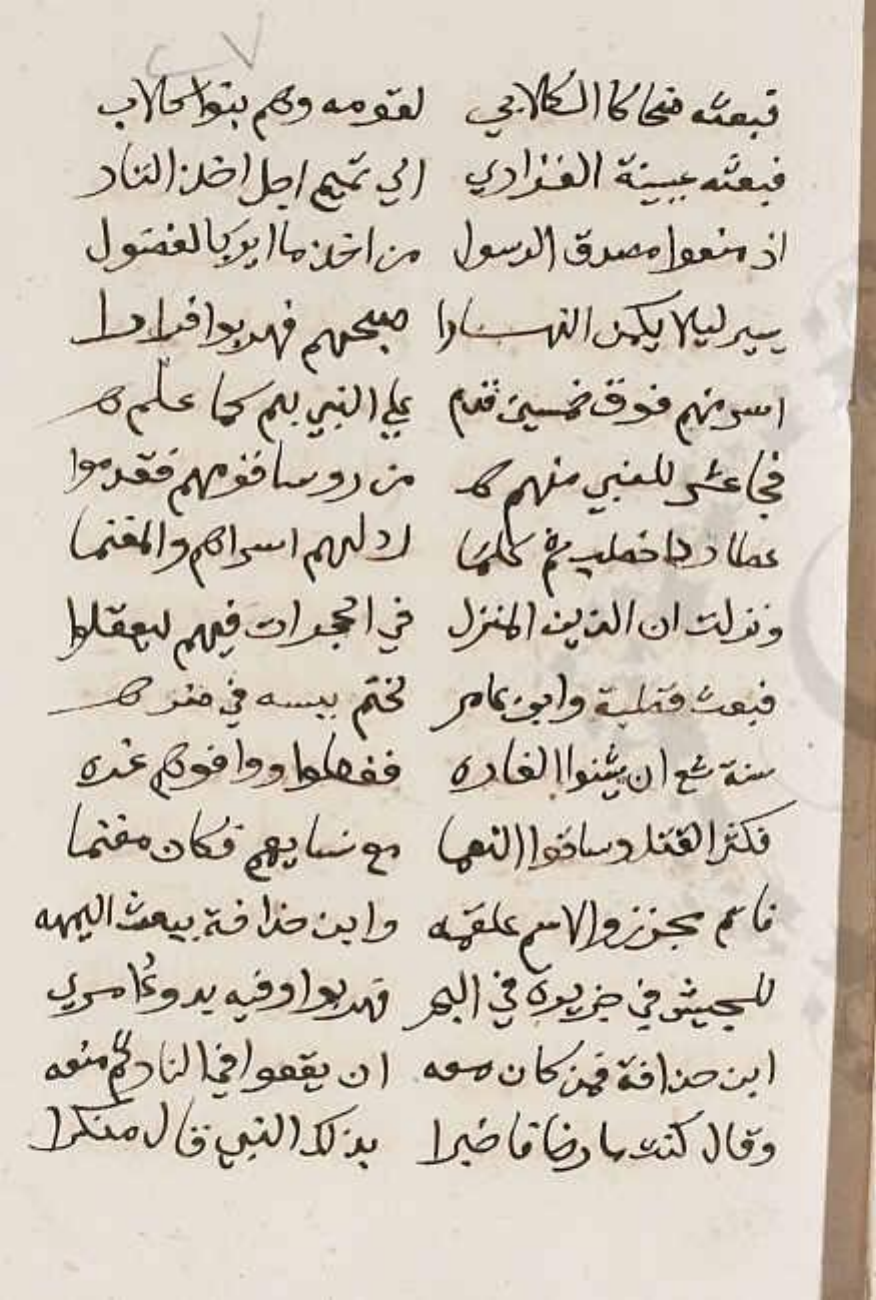 ٢٧
فبعثه ضحاكا الكلابي لقومه وهم بنوا كلاب
فبعثه عيينة الفزاري الي تميم اجل اخذ الثار
اذ منعوا مصدق الرسول من اخذ ما ابو بالفضول
يسير ليلا يكمن النهارا صبحهم فهربوا فرارا
اسر منهم فوق خمسين قدم علي النبي بهم كما علم
فجا عشر للنبي منهم من روسا قومهم فقدموا
عطارد خطيب كلما رد لهم اسراهم والمغنما
ونزلت ان الذين المنزل في الحجرات فيهم ليعقلوا
فبعث قطبة وابن عامر لخثعم ببيشه في صفر
سنة تسع ان يشنوا الغاره ففعلوا ووافوهم غره
فكثر القتل وساقوا النعما مع نسايهم فكان مغنما
فابن مجزز والاسم علقمه وابن حذافة ببعث اليهمه
للجيش في جزيرة في البحر فهربوا وفيه يدوعا مري
ابن حذافة فمن كان معه ان يقعوا في النار ثم منعه
وقال كنت مازحا فاخبرا بذلك النبي قال منكرا